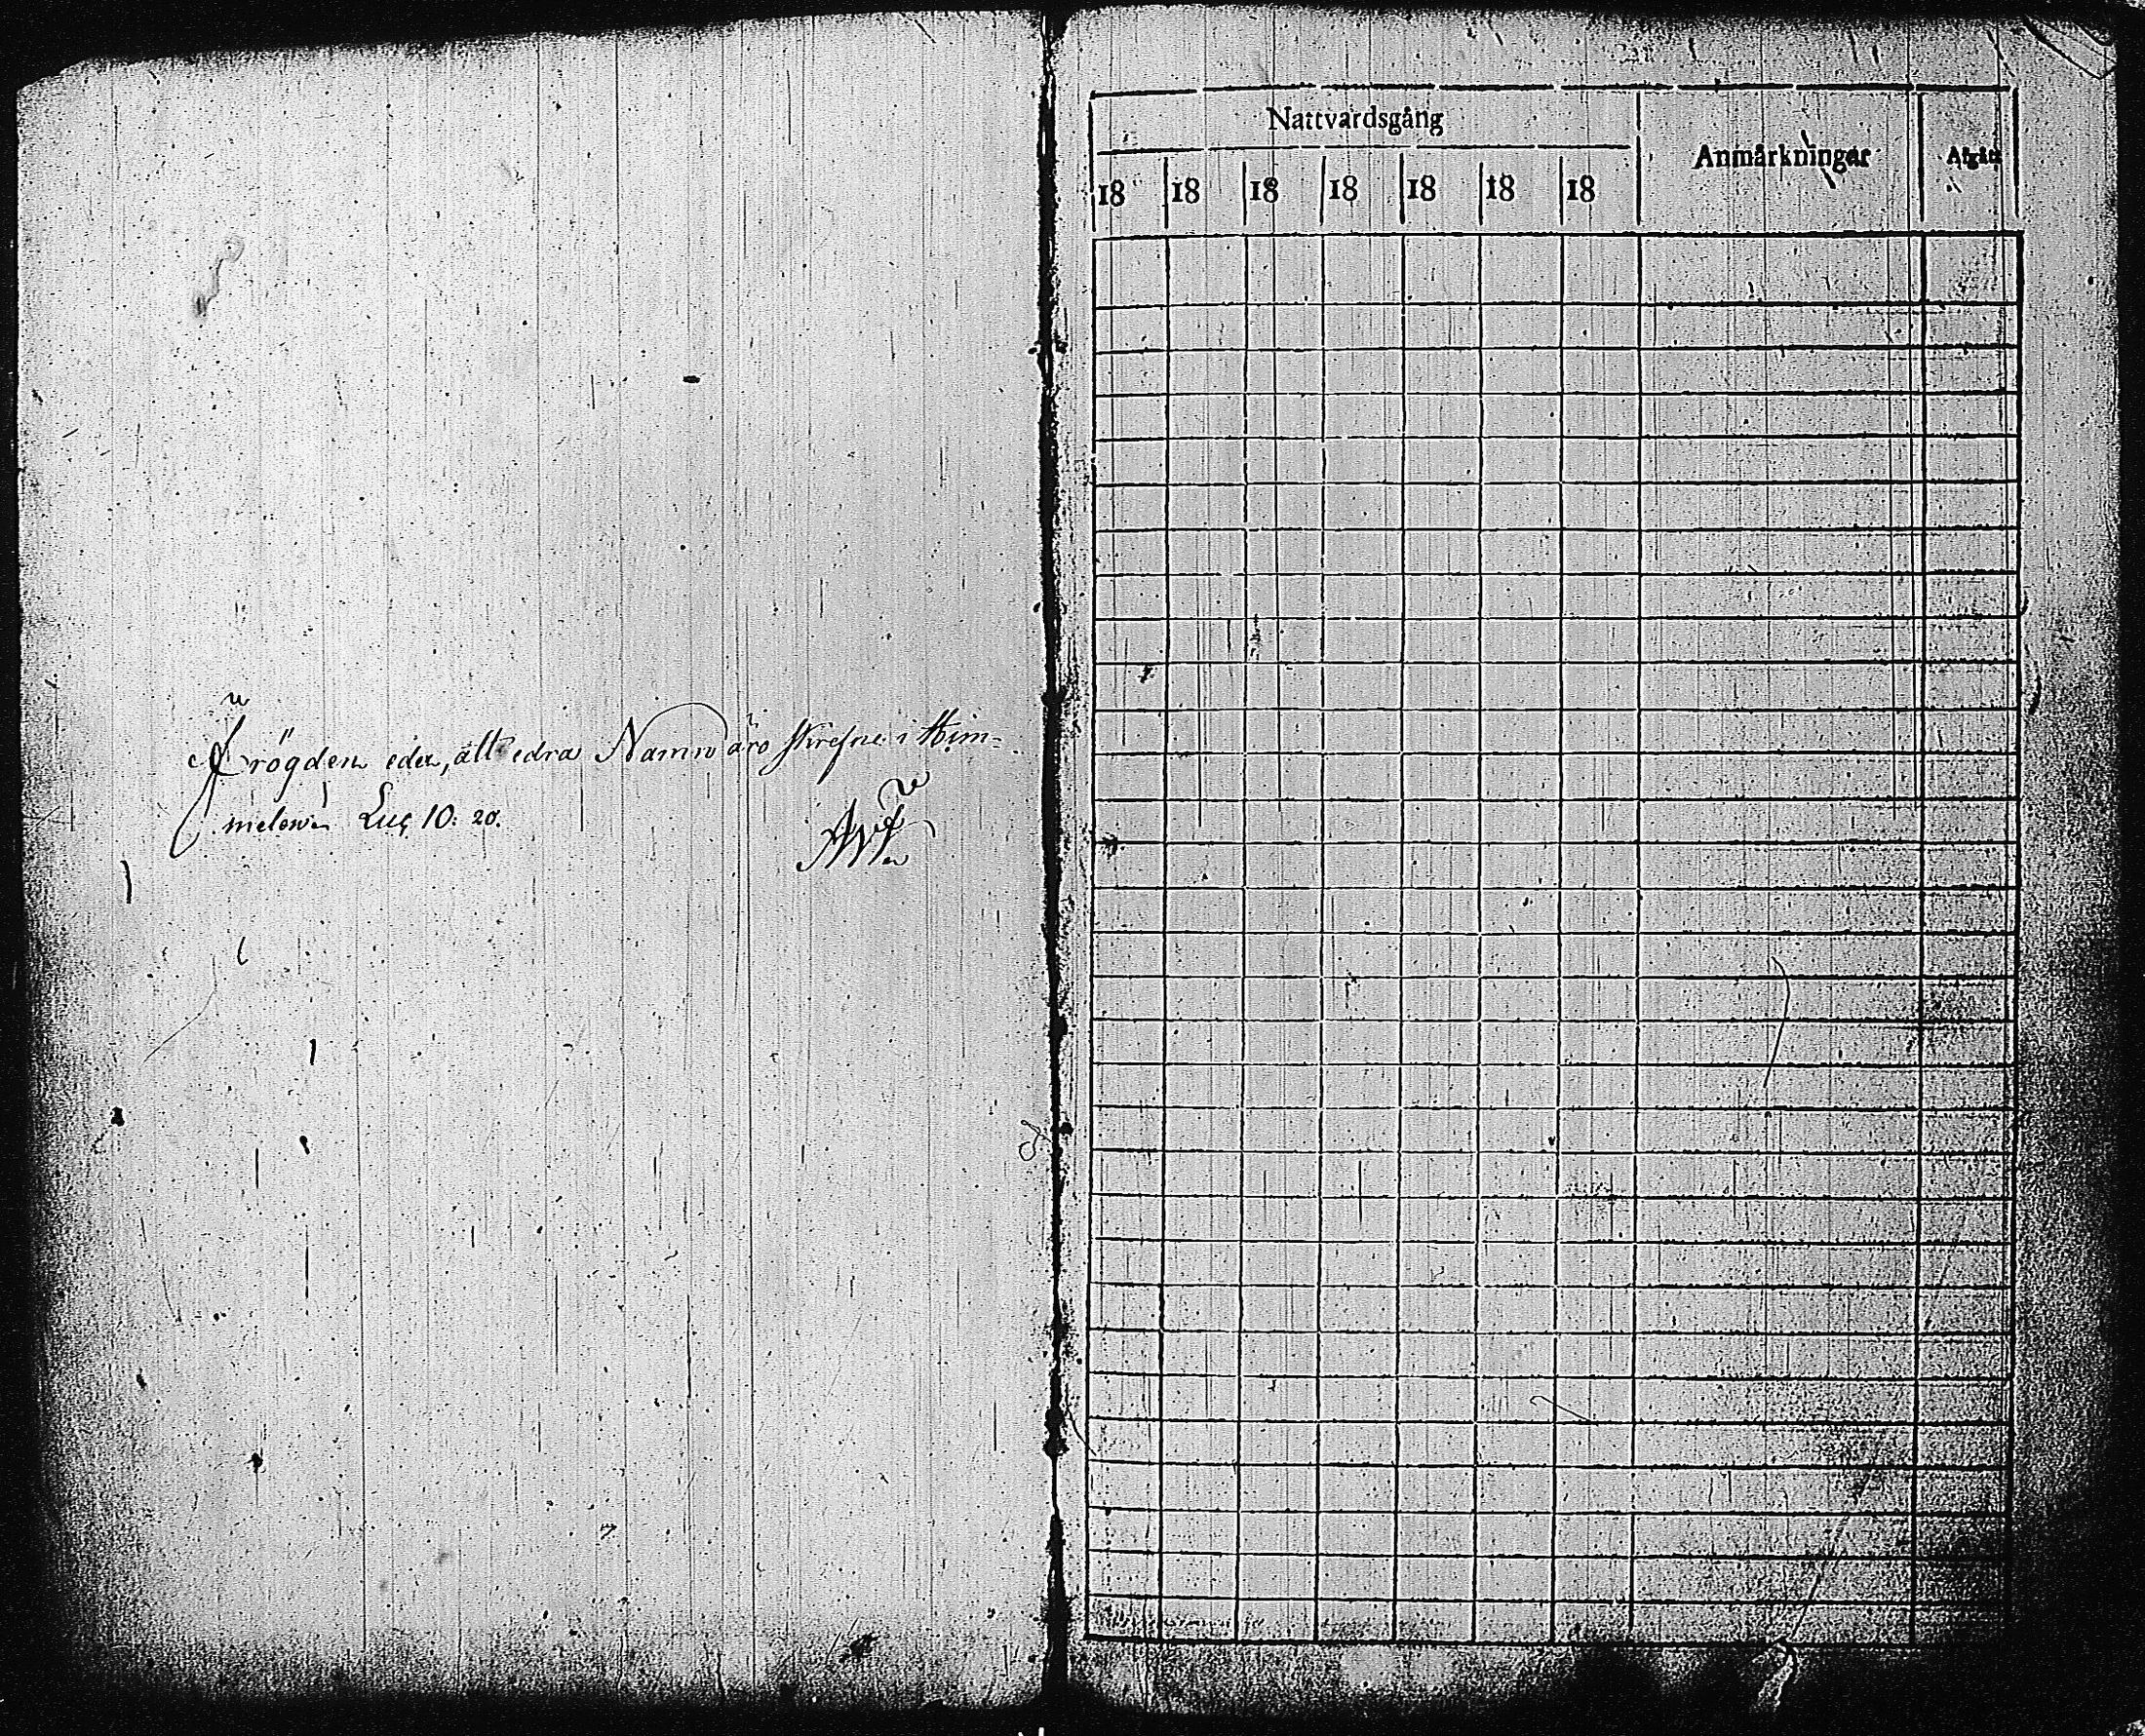 Frögden eder, att edra Namn äro skrefne i Him=
melen. Luc. 10: 20.
Nattvardsgång
Anmärkningar
Afgått
18 18 18 18 18 18 18